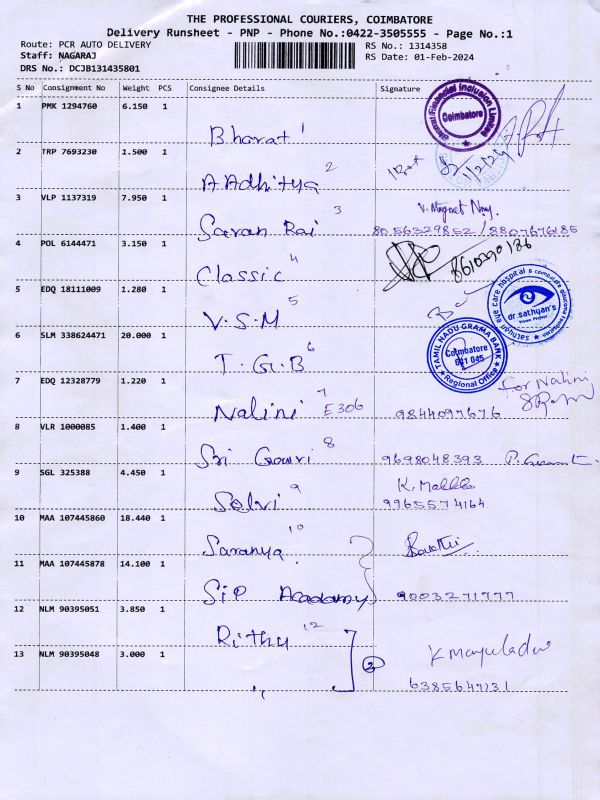 THE PROFESSIONAL COURIERS, COIMBATORE
Delivery Runsheet - PNP - Phone No.:0422-3505555 - Page No.:1
Route: PCR AUTO DELIVERY
Staff: NAGARAJ
DRS No.: DCJB131435801
RS No.: 1314358
RS Date: 01-Feb-2024
S No Consignment No Weight PCS Consignee Details Signature
1 PMK 1294760 6.150 1
Bharat 1
Financial Inclusion Limited
Coimbatore
2 TRP 7693230 1.500 1
A Adhitya 2
3 VLP 1137319 7.950 1
Saran Rai 3
8056329852 / 8807676185
4 POL 6144471 3.150 1
Classic 4
8610290186
5 EDQ 18111009 1.280 1
V.S.M 5
sathyan eye care hospital
dr.sathyan's
6 SLM 338624471 20.000 1
T.G.B 6
TAMIL NADU GRAMA BANK
Coimbatore
641 045
Regional Office
7 EDQ 12328779 1.220 1
Nalini 7 E306
9844097676
for Nalini
8 VLR 1000085 1.400 1
Sri Gowri 8
9698048393
9 SGL 325388 4.450 1
Selvi 9
9965574164
10 MAA 107445860 18.440 1
Saranya 10
11 MAA 107445878 14.100 1
SIP Academy
9003271777
12 NLM 90395051 3.850 1
Rithu 12
13 NLM 90395048 3.000 1
,, 2
6385647131